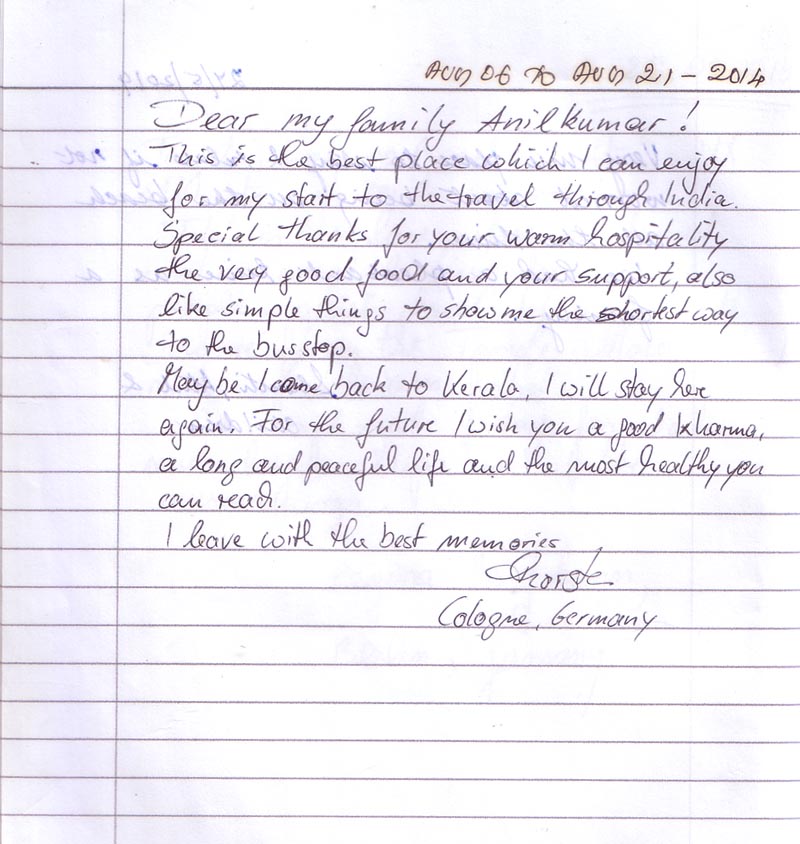 AUG 06 TO AUG 21 - 2014
Dear my family Anilkumar!
This is the best place which I can enjoy
for my start to the travel through India.
Special thanks for your warm hospitality
the very good food and your support, also
like simple things to show me the shortest way
to the bus stop.
May be I come back to Kerala, I will stay here
again. For the future I wish you a good kharma,
a long and peaceful life and the most healthy you
can reach.
I leave with the best memories
Cologne, Germany